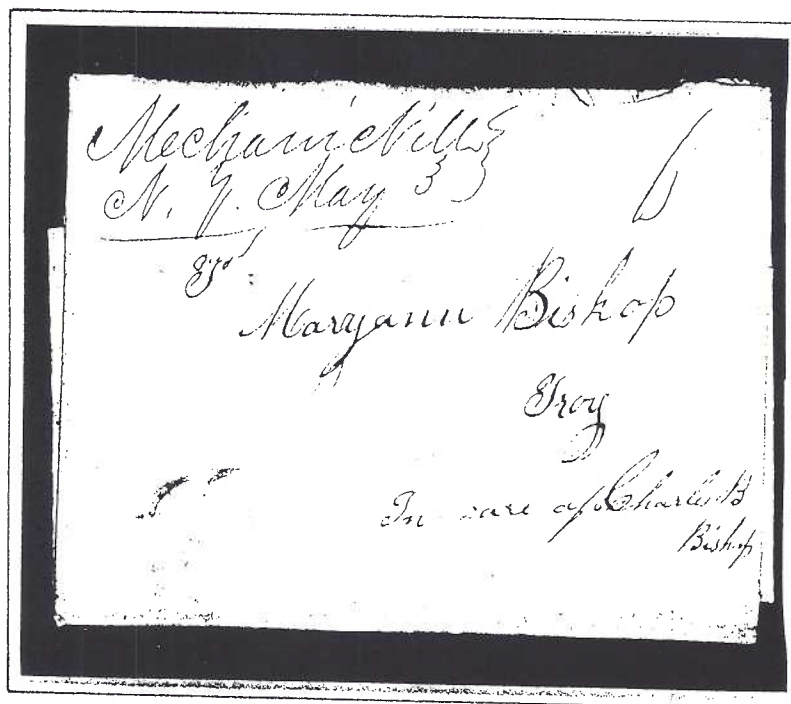 MechanicVille
N. Y. May 3
6
To
Maryann Bishop
Troy
In care of Charles B
Bishop